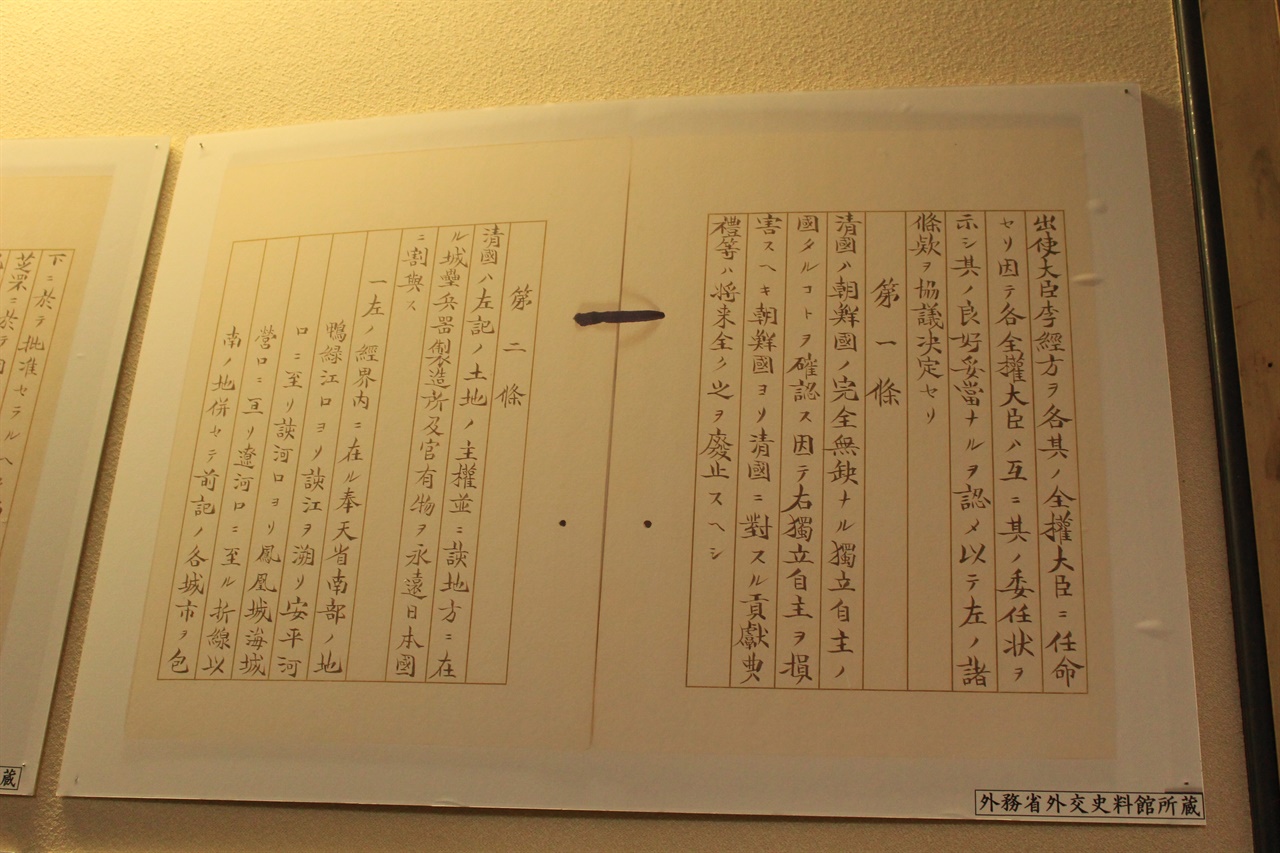 出使大臣李經方ヲ各其ノ全權大臣ニ任命
セリ因テ各全權大臣ハ互ニ其ノ委任状ヲ
示シ其ノ良好妥當ナルヲ認メ以テ左ノ諸
條欵ヲ協議决定セリ
第一條
清國ハ朝鮮國ノ完全無缺ナル獨立自主ノ
國タルコトヲ確認ス因テ右獨立自主ヲ損
害スヘキ朝鮮國ヨリ清國ニ對スル貢獻典
禮等ハ将来全ク之ヲ廢止スヘシ
第二條
清國ハ左記ノ土地ノ主權並ニ該地方ニ在
ル城壘兵器製造所及官有物ヲ永遠日本國
ニ割與ス
一左ノ經界内ニ在ル奉天省南部ノ地
鴨緑江口ヨリ該江ヲ溯リ安平河
口ニ至リ該河口ヨリ鳳凰城海城
營口ニ亘リ遼河口ニ至ル折線以
南ノ地併セテ前記ノ各城市ヲ包
下ニ於テ批准セラルヘ
芝罘ニ於テ
蔵
外務省外交史料館所蔵